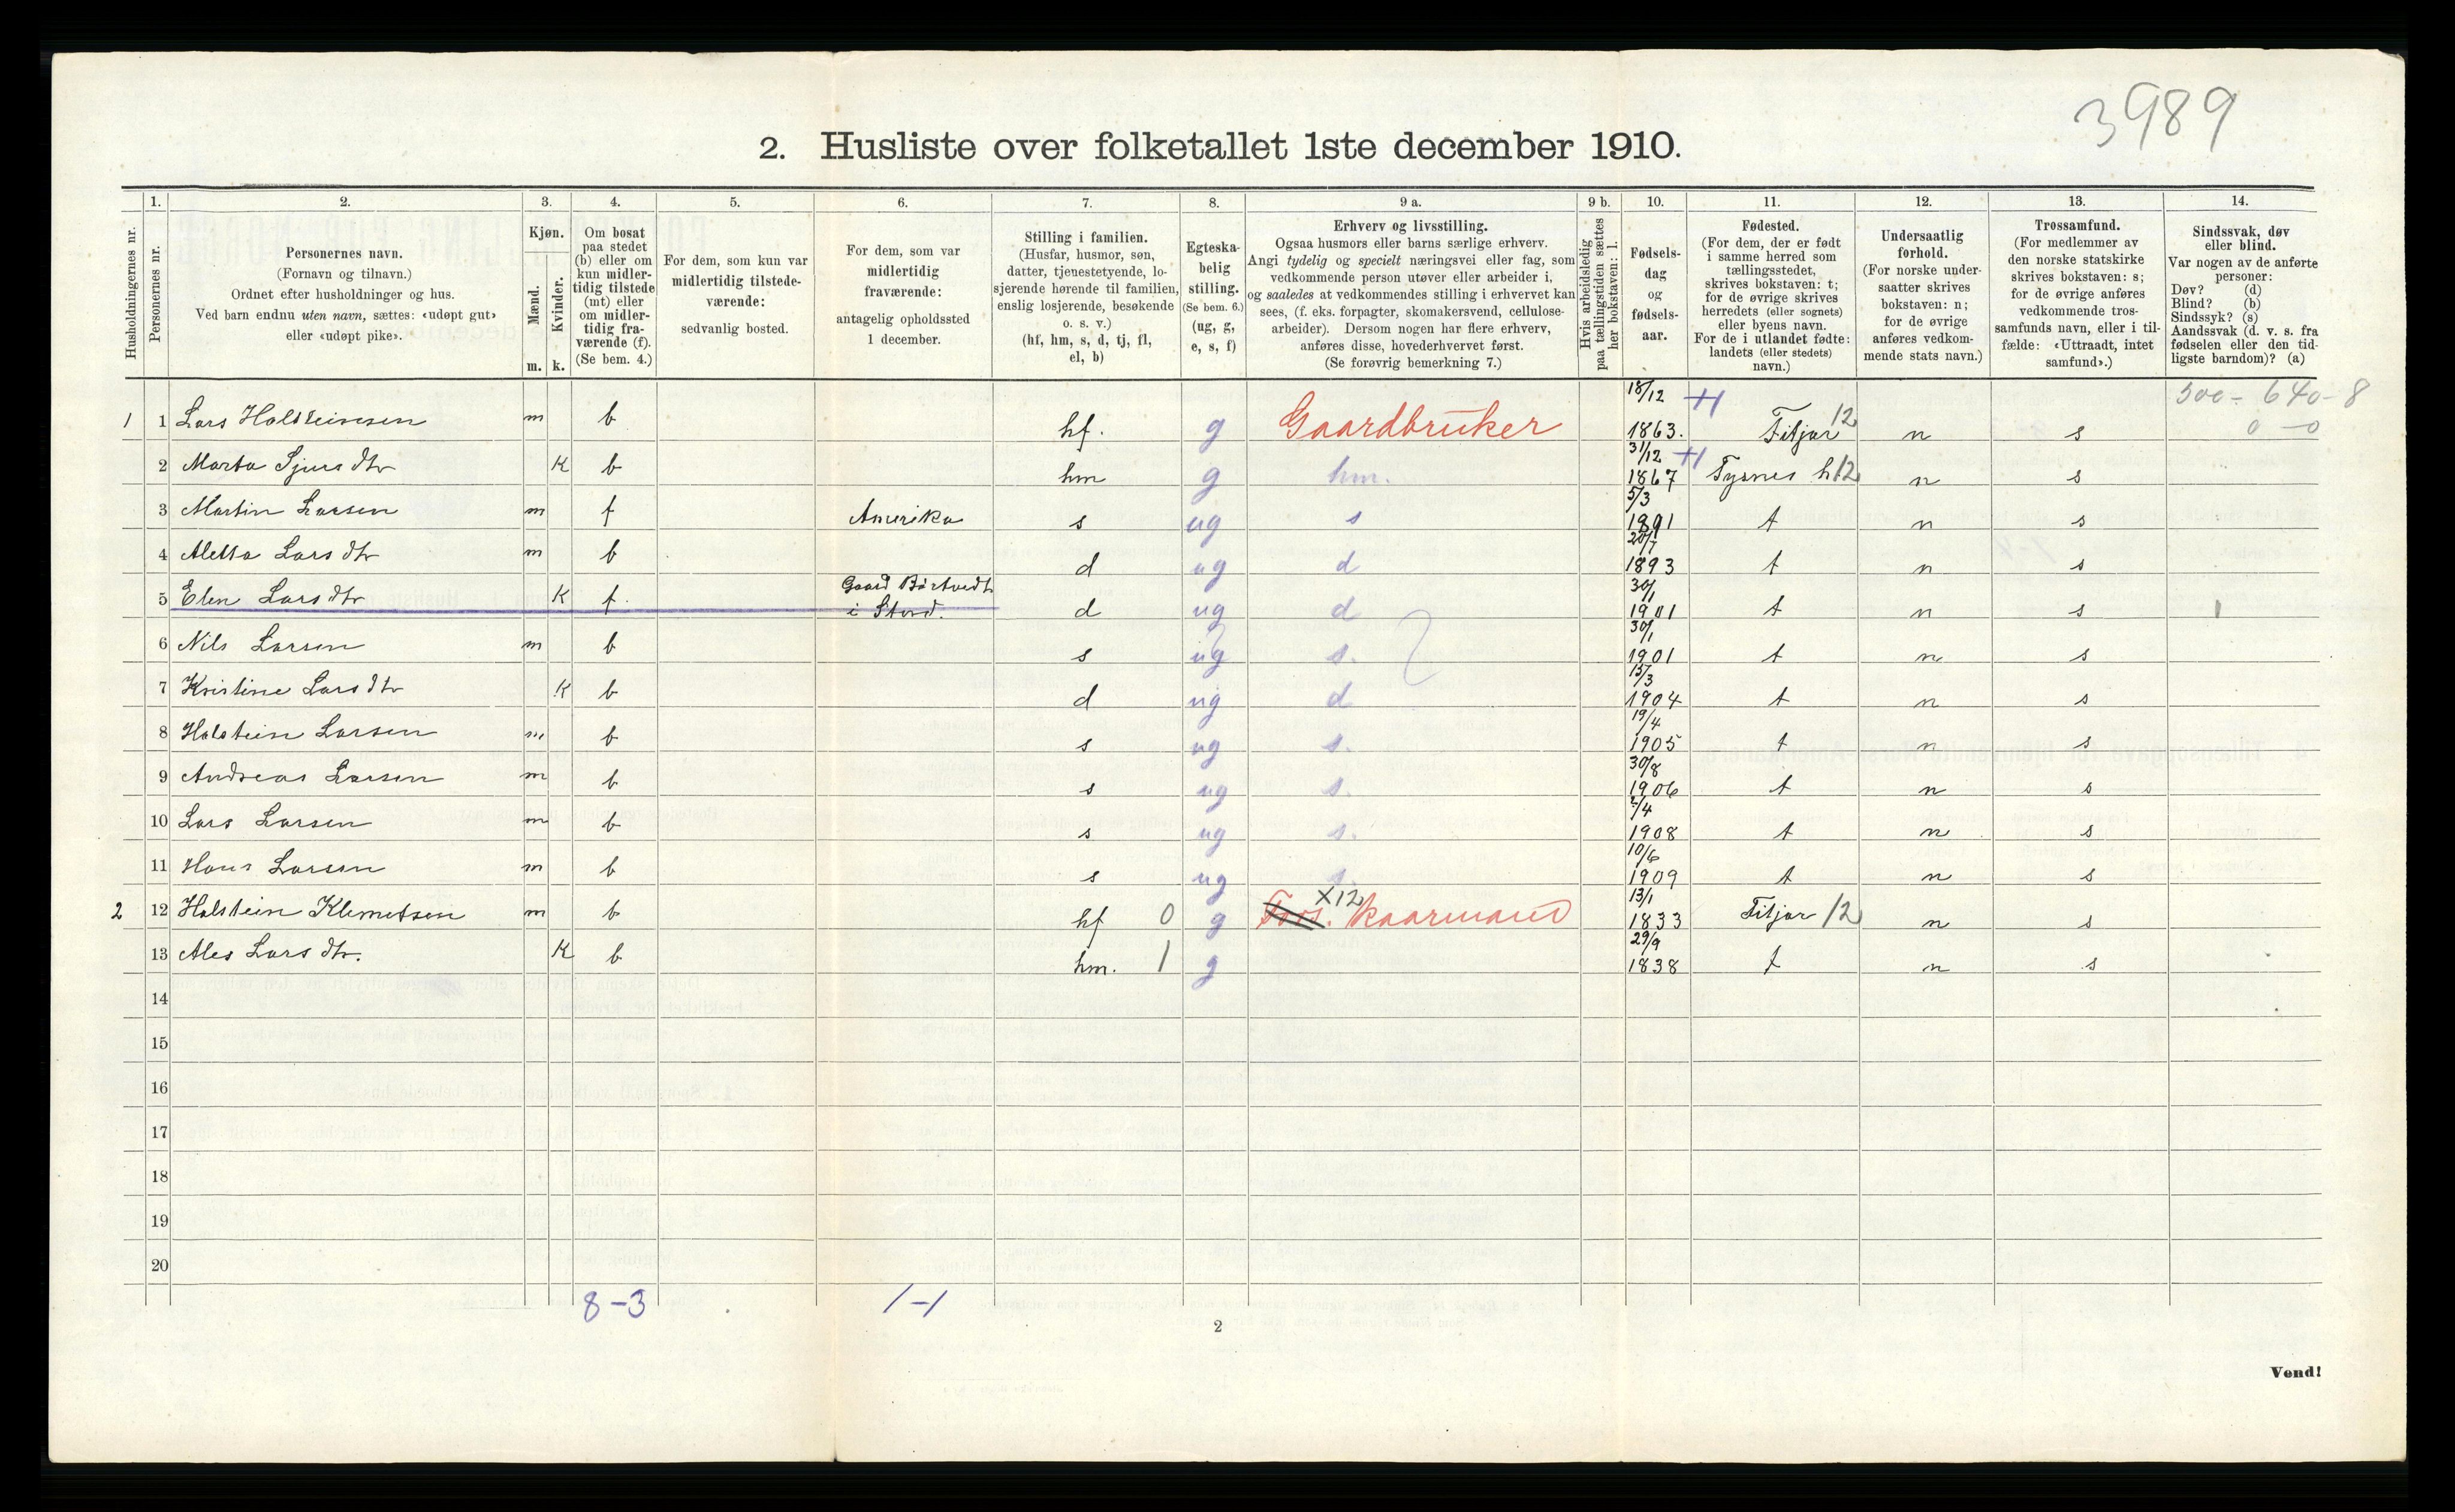 3989
2. Husliste over folketallet 1ste december 1910.
Husholdningernes nr.
1.
Personernes nr.
2.
Personernes navn.
(Fornavn og tilnavn.)
Ordnet efter husholdninger og hus.
Ved barn endnu uten navn, sættes: «udøpt gut»
eller «udøpt pike».
3.
Kjøn.
Mænd.
Kvinder.
m. k.
4.
Om bosat
paa stedet
(b) eller om
kun midler-
tidig tilstede
(mt) eller
om midler-
tidig fra-
værende (f).
(Se bem. 4.)
5.
For dem, som kun var
midlertidig tilstede-
værende:
sedvanlig bosted.
6.
For dem, som var
midlertidig
fraværende:
antagelig opholdssted
1 december.
7.
Stilling i familien.
(Husfar, husmor, søn,
datter, tjenestetyende, lo-
sjerende hørende til familien,
enslig losjerende, besøkende
o. s. v.)
(hf, hm, s, d, tj, fl,
el, b)
8.
Egteska-
belig
stilling.
(Se bem. 6.)
(ug, g,
e, s, f)
9 a.
Erhverv og livsstilling.
Ogsaa husmors eller barns særlige erhverv.
Angi tydelig og specielt næringsvei eller fag, som
vedkommende person utøver eller arbeider i,
og saaledes at vedkommendes stilling i erhvervet kan
sees, (f. eks. forpagter, skomakersvend, cellulose-
arbeider). Dersom nogen har flere erhverv,
anføres disse, hovederhvervet først.
(Se forøvrig bemerkning 7.)
9 b.
Hvis arbeidsledig
paa tællingstiden sættes
her bokstaven: l.
10.
Fødsels-
dag
og
fødsels-
aar.
11.
Fødested.
(For dem, der er født
i samme herred som
tællingsstedet,
skrives bokstaven: t;
for de øvrige skrives
herredets (eller sognets)
eller byens navn.
For de i utlandet fødte:
landets (eller stedets)
navn.)
12.
Undersaatlig
forhold.
(For norske under-
saatter skrives
bokstaven: n;
for de øvrige
anføres vedkom-
mende stats navn.)
13.
Trossamfund.
(For medlemmer av
den norske statskirke
skrives bokstaven: s;
for de øvrige anføres
vedkommende tros-
samfunds navn, eller i til-
fælde: «Uttraadt, intet
samfund».)
14.
Sindssvak, døv
eller blind.
Var nogen av de anførte
personer:
Døv? (d)
Blind? (b)
Sindssyk? (s)
Aandssvak (d. v. s. fra
fødselen eller den tid-
ligste barndom)? (a)
500 - 640 - 8
0 - 0
1 1 Lars Halsteinsen m b hf. g Gaardbruker 18/12 1863. Fitjar 12 n s
2 Marta Sjursdtr K b hm g hm. 31/12 1867 Tysnes h 12 n s
3 Martin Larsen m f Amerika s ug s 5/3 1891 t n s
4 Aletta Larsdtr m b d ug d 20/7 1893 t n s
5 Elen Larsdtr K f. Gaard Børtvedt i Stord. d ug d 30/1 1901 t n s 1
6 Nils Larsen m b s ug s. 30/1 1901 t n s
7 Kristine Larsdtr K b d ug d 15/3 1904 t n s
8 Halstein Larsen m b s ug s. 19/4 1905 t n s
9 Andreas Larsen m b s ug s. 30/8 1906 t n s
10 Lars Larsen m b s ug s. 2/4 1908 t n s
11 Hans Larsen m b s ug s. 10/6 1909 t n s
2 12 Halstein Klemetsen m b hf 0 g X12 kaarmand 13/1 1833 Fitjar 12 n s
13 Ales Larsdtr. K b hm. 1 g 29/9 1838 t n s
14
15
16
17
18
19
20
8-3 1-1
2
Vend!